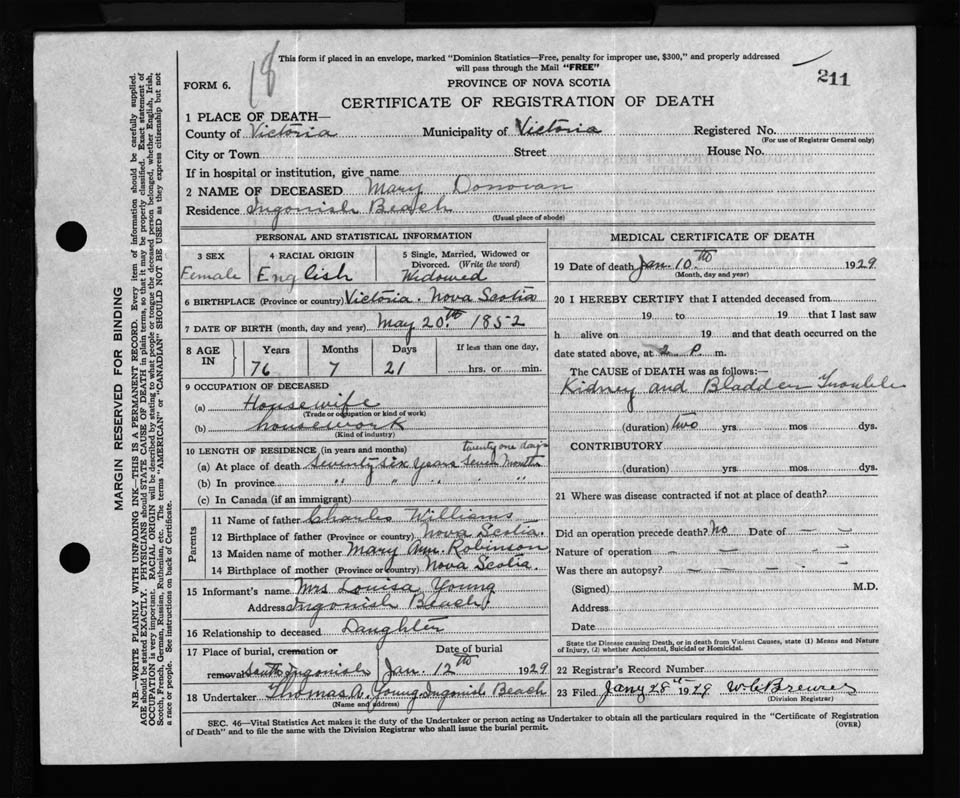 18
This form if placed in an envelope, marked "Dominion Statistics—Free, penalty for improper use, $300," and properly addressed
will pass through the Mail "FREE"
211
FORM 6.
PROVINCE OF NOVA SCOTIA
CERTIFICATE OF REGISTRATION OF DEATH
1 PLACE OF DEATH—
County of Victoria Municipality of Victoria Registered No.
(For use of Registrar General only)
City or Town Street House No.
If in hospital or institution, give name
2 NAME OF DECEASED Mary Donovan
Residence Ingonish Beach
(Usual place of abode)
PERSONAL AND STATISTICAL INFORMATION
3 SEX
Female
4 RACIAL ORIGIN
English
5 Single, Married, Widowed or
Divorced. (Write the word)
Widowed
6 BIRTHPLACE (Province or country) Victoria. Nova Scotia
7 DATE OF BIRTH (month, day and year) May 20th 1852
8 AGE
IN
Years Months Days If less than one day,
76 7 21 hrs. or min.
9 OCCUPATION OF DECEASED
(a) Housewife
(Trade or occupation or kind of work)
(b) housework
(Kind of industry)
10 LENGTH OF RESIDENCE (in years and months) twenty one days
(a) At place of death Seventy Six Years Seven Months
(b) In province " " " " "
(c) In Canada (if an immigrant)
Parents
11 Name of father Charles Williams
12 Birthplace of father (Province or country) Nova Scotia.
13 Maiden name of mother Mary Ann. Robinson
14 Birthplace of mother (Province or country) Nova Scotia.
15 Informant's name Mrs Louisa Young
Address Ingonish Beach
16 Relationship to deceased Daughter
17 Place of burial, cremation or Date of burial
removal South Ingonish Jan. 12th 1929
18 Undertaker Thomas A. Young Ingonish Beach
(Name and address)
MEDICAL CERTIFICATE OF DEATH
19 Date of death Jan. 10th 1929
(Month, day and year)
20 I HEREBY CERTIFY that I attended deceased from
19 to 19 that I last saw
h alive on 19 and that death occurred on the
date stated above, at 2 P. m.
The CAUSE of DEATH was as follows:—
Kidney and Bladder Trouble
(duration) two yrs. mos. dys.
CONTRIBUTORY
(duration) yrs. mos. dys.
21 Where was disease contracted if not at place of death?
Did an operation precede death? No Date of — —
Nature of operation — — —
Was there an autopsy? — — — —
(Signed) M.D.
Address
Date
State the Disease causing Death, or in death from Violent Causes, state (1) Means and Nature
of Injury, (2) whether Accidental, Suicidal or Homicidal.
22 Registrar's Record Number
23 Filed Jany 28th 1929 W. C. Brewer
(Division Registrar)
SEC. 46—Vital Statistics Act makes it the duty of the Undertaker or person acting as Undertaker to obtain all the particulars required in the "Certificate of Registration
of Death" and to file the same with the Division Registrar who shall issue the burial permit.
(OVER)
MARGIN RESERVED FOR BINDING
N.B.—WRITE PLAINLY WITH UNFADING INK—THIS IS A PERMANENT RECORD. Every item of information should be carefully supplied.
AGE should be stated EXACTLY. PHYSICIANS should STATE CAUSE OF DEATH in plain terms, so that it may be properly classified. Exact statement of
OCCUPATION is very important. RACIAL ORIGIN will be described by stating to what people or tongue the deceased person belonged, whether English, Irish,
Scotch, French, German, Russian, Ruthenian, etc. The terms "AMERICAN" or "CANADIAN" SHOULD NOT BE USED as they express citizenship but not
a race or people. See instructions on back of Certificate.